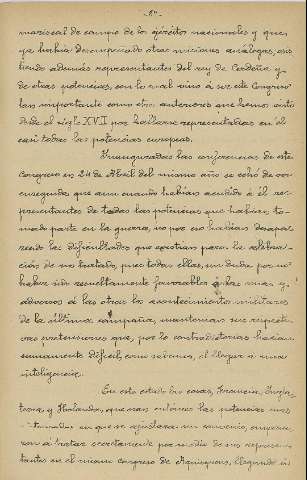 -8-
mariscal de campo de los ejércitos nacionales y quien
ya había desempeñado otras misiones análogas, asis
tiendo además representantes del rey de Cerdeña y
de otras potencias, con lo cual vino á ser este Congreso
tan importante como otros anteriores que hemos visto
desde el siglo XVI por hallarse representadas en él
casi todas las potencias europeas.
Inauguradas las conferencias de este
Congreso en 24 de Abril del mismo año se echó de ver
enseguida que aun cuando habían acudido á él re-
presentantes de todas las potencias que habían to-
mado parte en la guerra, no por eso habían desapa-
recido las dificultades que existían para la celebra-
ción de un tratado, pues todas ellas, sin duda por no
haber sido resueltamente favorables á las unas y
adversos á las otras los acontecimientos militares
de la última campaña, mantenían sus respecti-
vas pretensiones que, por lo contradictorias hacían
sumamente difícil, como veíamos, el llegar á una
inteligencia.
En este estado las cosas, Francia, Ingla-
terra, y Holanda, que eran entonces las potencias más
en que se ajustara un convenio, empeza-
ron á tratar secretamente por medio de sus represen-
tantes en el mismo congreso de Aquisgran, llegando en